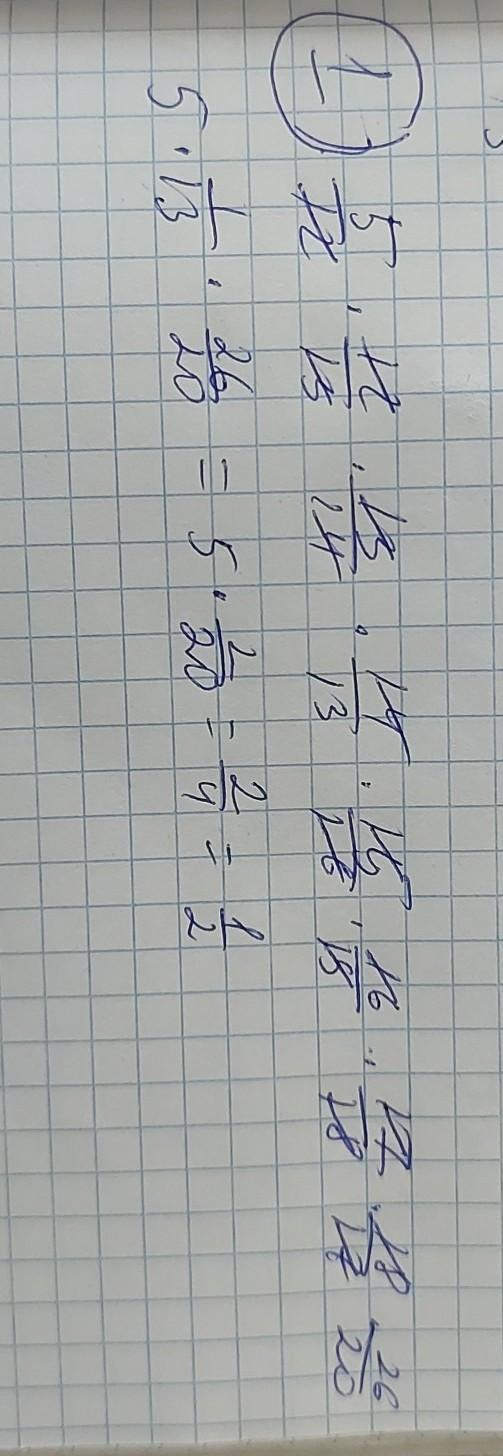 1 5/12 · 12/15 · 15/14 · 14/13 · 15/16 · 16/15 · 17/18 · 18/17 · 26/20
5 · 1/13 · 26/20 = 5 · 2/20 = 2/4 = 1/2